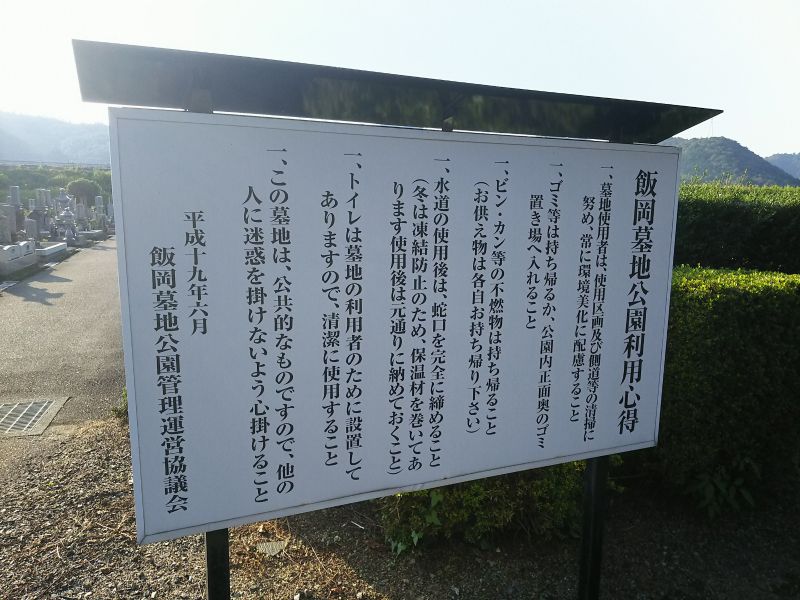 飯岡墓地公園利用心得
一、墓地使用者は、使用区画及び側道等の清掃に
努め、常に環境美化に配慮すること
一、ゴミ等は持ち帰るか、公園内正面奥のゴミ
置き場へ入れること
一、ビン・カン等の不燃物は持ち帰ること
（お供え物は各自お持ち帰り下さい）
一、水道の使用後は、蛇口を完全に締めること
（冬は凍結防止のため、保温材を巻いてあ
ります使用後は元通りに納めておくこと）
一、トイレは墓地の利用者のために設置して
ありますので、清潔に使用すること
一、この墓地は、公共的なものですので、他の
人に迷惑を掛けないよう心掛けること
平成十九年六月
飯岡墓地公園管理運営協議会